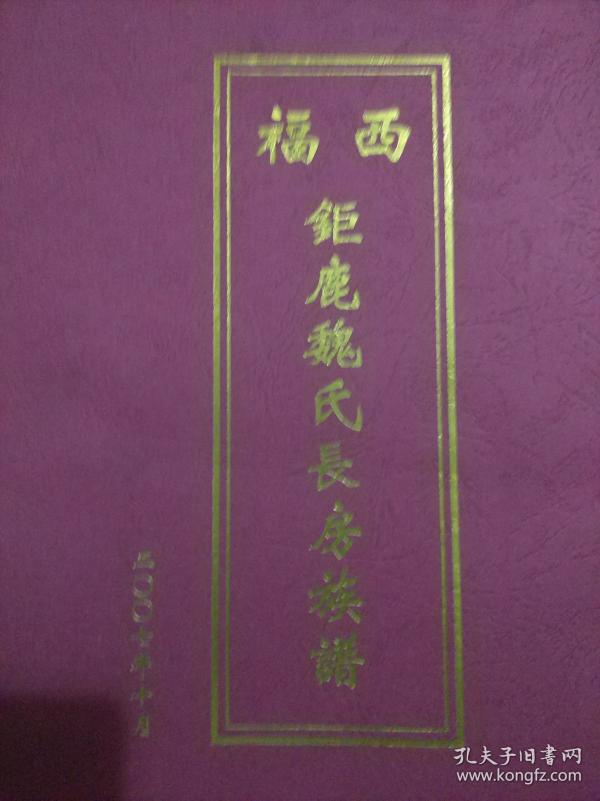 西福
鉅鹿魏氏長房族譜
二〇〇七年十月
孔夫子旧書网
www.kongfz.com